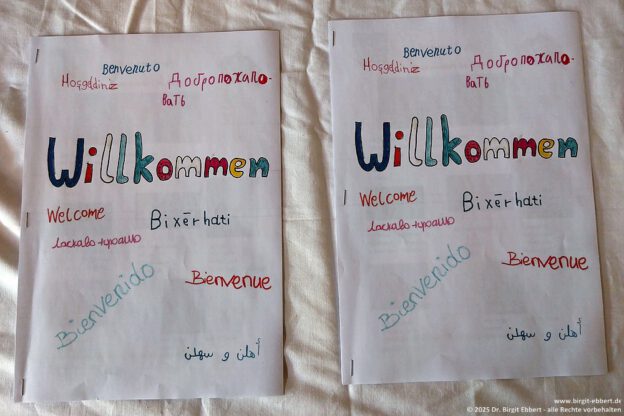 Benvenuto
Hoşgəldiniz
Добропожало-
вать
Willkommen
Welcome
Bixērhati
ласкаво
Bienvenido
Bienvenue
أهلن و سهلن
Benvenuto
Hoşgəldiniz
Добропожало-
вать
Willkommen
Welcome
Bixērhati
ласкаво
Bienvenido
Bienvenue
أهلن و سهلن
www.birgit-ebbert.de
© 2025 Dr. Birgit Ebbert - alle Rechte vorbehalten